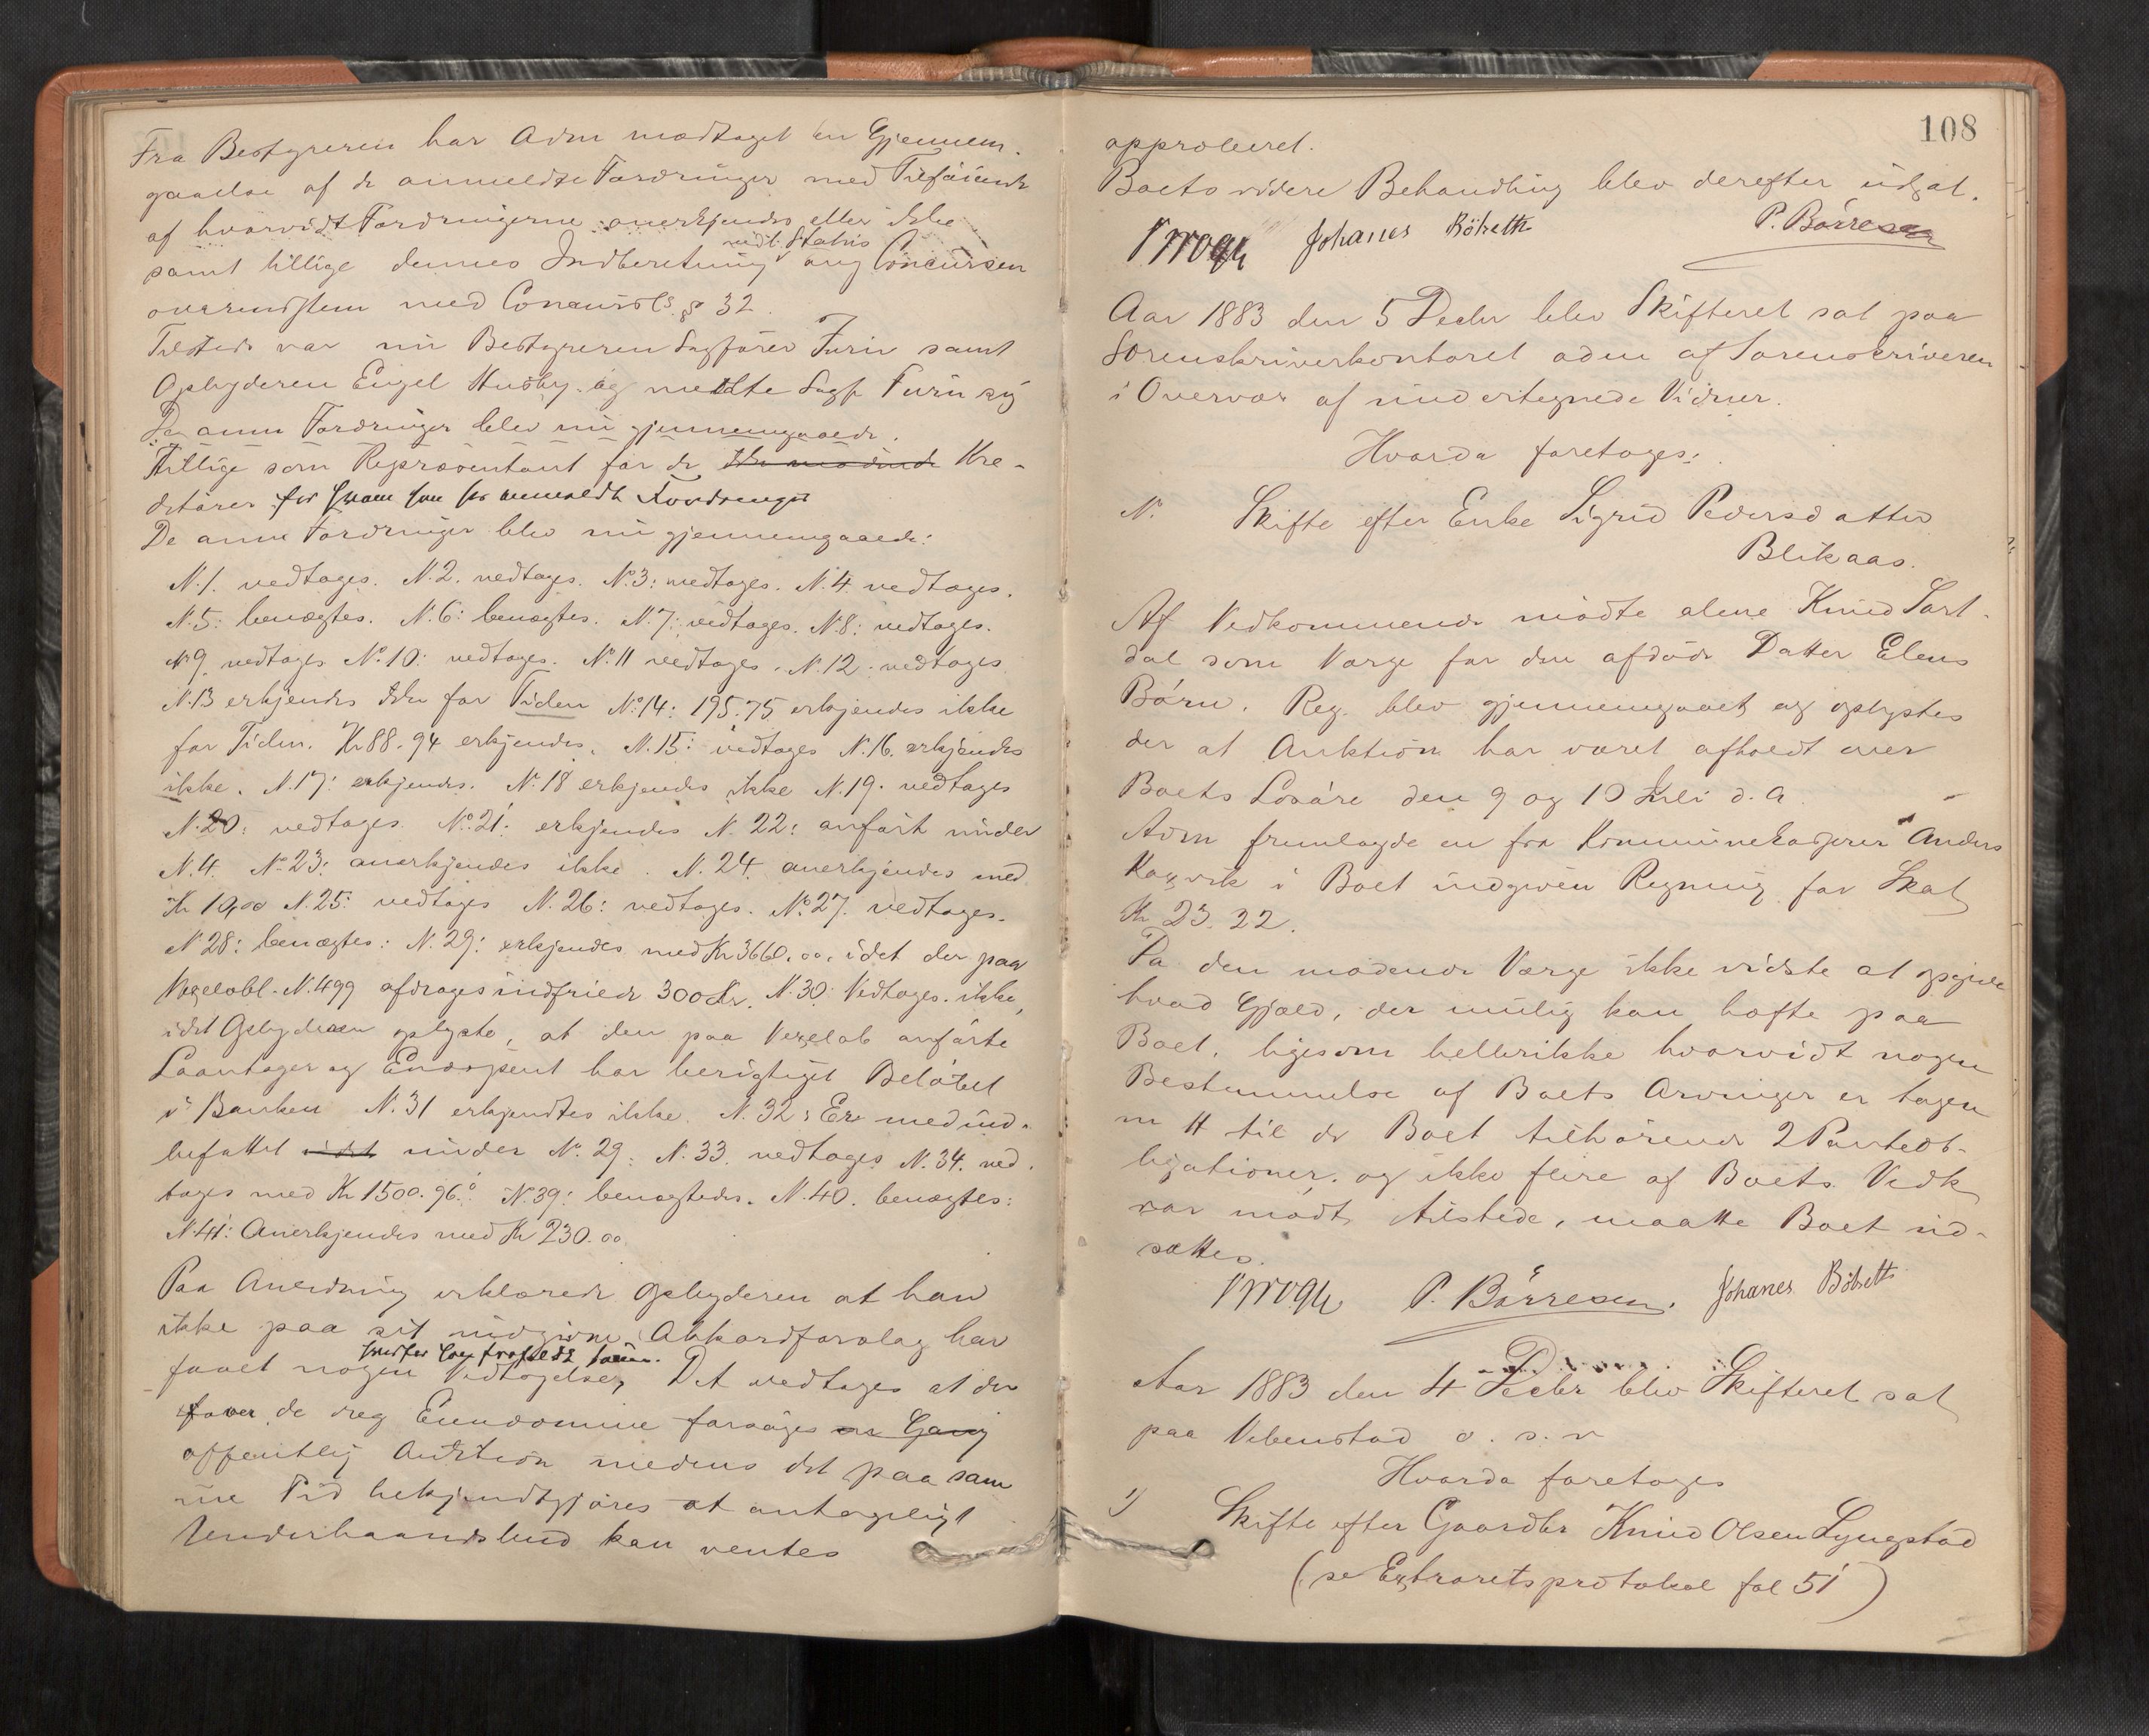 Fra Bestyreren har Adm modtaget en Gjennem-
gaaelse af de anmeldte Fordringer med Tilføiende
af hvorvidt Fordringerne anerkjendes eller ikke
samt tillige dennes Indberetning vedl. Status ang Concursen
overensstem med Concursl. § 32.
Tilstede var nu Bestyreren Sagfører Furu samt
Opbyderen Engel Husby. og meldte Sagf Furu sig
De anm Fordringer blev nu gjennemgaaede.
Tillige som Repræsentant for de ikke mødende Kre-
ditorer for hvem han har anmeldt Fordringer
De anm Fordringer blev nu gjennemgaaede:
N.1. vedtages. N.2. vedtages. No.3: vedtages. N.4 vedtages.
N.5: benægtes. N.6: benægtes. N.7: vedtages. N.8: vedtages.
No.9 vedtages No.10: vedtages. No.11 vedtages. N.12. vedtages
N.13 erkjendes ikke for Tiden No.14: 195.75 erkjendes ikke
for Tiden. Kr 88.94 erkjendes. N.15: vedtages N.16. erkjendes
ikke. N.17: erkjendes. No 18 erkjendes ikke N.19. vedtages
N.20: vedtages. No.21: erkjendes N. 22: anført under
N.4. No.23: anerkjendes ikke. N.24. anerkjendes med
Kr 10,00 N.25: vedtages N.26: vedtages. No.27. vedtages.
N 28: benægtes: N.29: erkjendes med Kr 3660.00. idet der paa
Vexelobl. N.499 afdrages indfriede 300 Kr. N.30: Vedtages. ikke,
idet Opbyderen oplyste, at den paa Vexelob anførte
Laantager og Endossent har berigtiget Beløbet
i Banken N.31 erkjendtes ikke. N.32: Er med ind-
befattet idet under No. 29. N.33. vedtages N.34. ved-
tages med Kr 1500.96. No.39: benægtedes. N.40. benægtes:
N.41: Anerkjendes med Kr 230.00.
Paa Anledning erklærede Opbyderen at han
ikke paa sit indgivne Akkordforslag har
faaet nogen Vedtagelse, Det vedtages at der
over de reg Eiendomme forsøges en Gang
offentlig Auktion medens det paa sam
me Tid bekjendtgjøres at antageligt
Underhaandsbud kan ventes
108
approberet.
Boets videre Behandling blev derefter udsat.
Krogh Johanes Bölseth P. Børresen
Aar 1883 den 5 Decbr blev Skifteret sat paa
Sorenskriverkontoret adm af Sorenskriveren
i Overvær af undertegnede Vidner.
Hvorda foretoges:
No. Skifte efter Enke Sigrid Pedersdatter
Blikaas.
Af Vedkommende mødte alene Knud Sørl-
dal som Værge for den afdøde Datter Elens
Børn. Reg. blev gjennemgaaet og oplystes
der at Auktion har været afholdt over
Boets Løsøre den 9 og 10 Juli d. A.
Adm fremlagde en fra Kommunekasserer Anders
i Boet indgiven Regning for Skat
Kr 23.22.
Da den mødende Værge ikke vidste at opgive
hvad Gjæld, der mulig kan hæfte paa
Boet, ligesom hellerikke hvorvidt nogen
Bestemmelse af Boets Arvinger er tagen
m H til de Boet tilhørende 2 Pantob-
ligationer. og ikke flere af Boets Vedk
var mødt tilstede, maatte Boet ud-
sættes.
Krogh P. Börresen. Johanes Bölseth
Aar 1883 den 4 Decbr blev Skifteret sat
paa Vebenstad o. s. v
Hvorda foretoges
1) Skifte efter Gaardbr Knud Olsen Lyngstad
(se Extraretsprotokol fol 51)